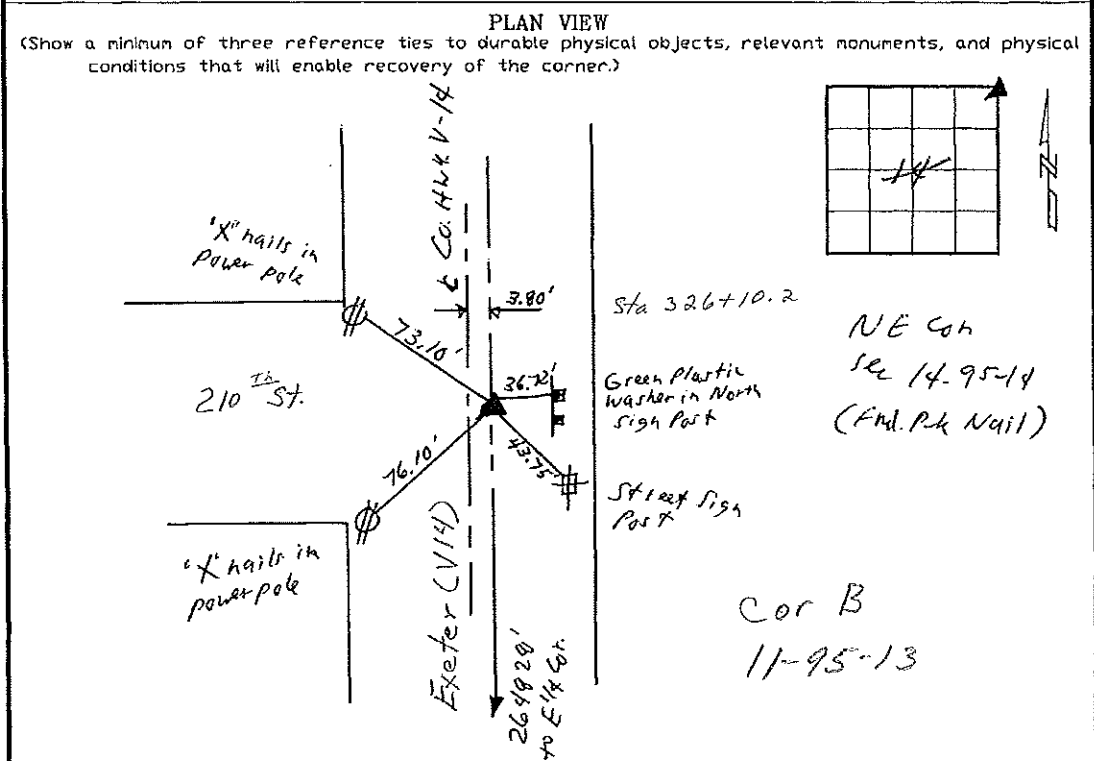 PLAN VIEW
(Show a minimum of three reference ties to durable physical objects, relevant monuments, and physical
conditions that will enable recovery of the corner.)
℄ Co. Hwy V-14
14
N
"X" nails in
power pole
3.80'
Sta 326+10.2
73.10'
36.72'
NE Cor
Sec 14-95-14
(Fnd. P-k Nail)
210 th St.
Green Plastic
washer in North
sign Post
76.10'
43.75'
Street Sign
Post
"X" nails in
power pole
Exeter (V14)
2648.28'
to E 1/4 Cor.
Cor B
11-95-13